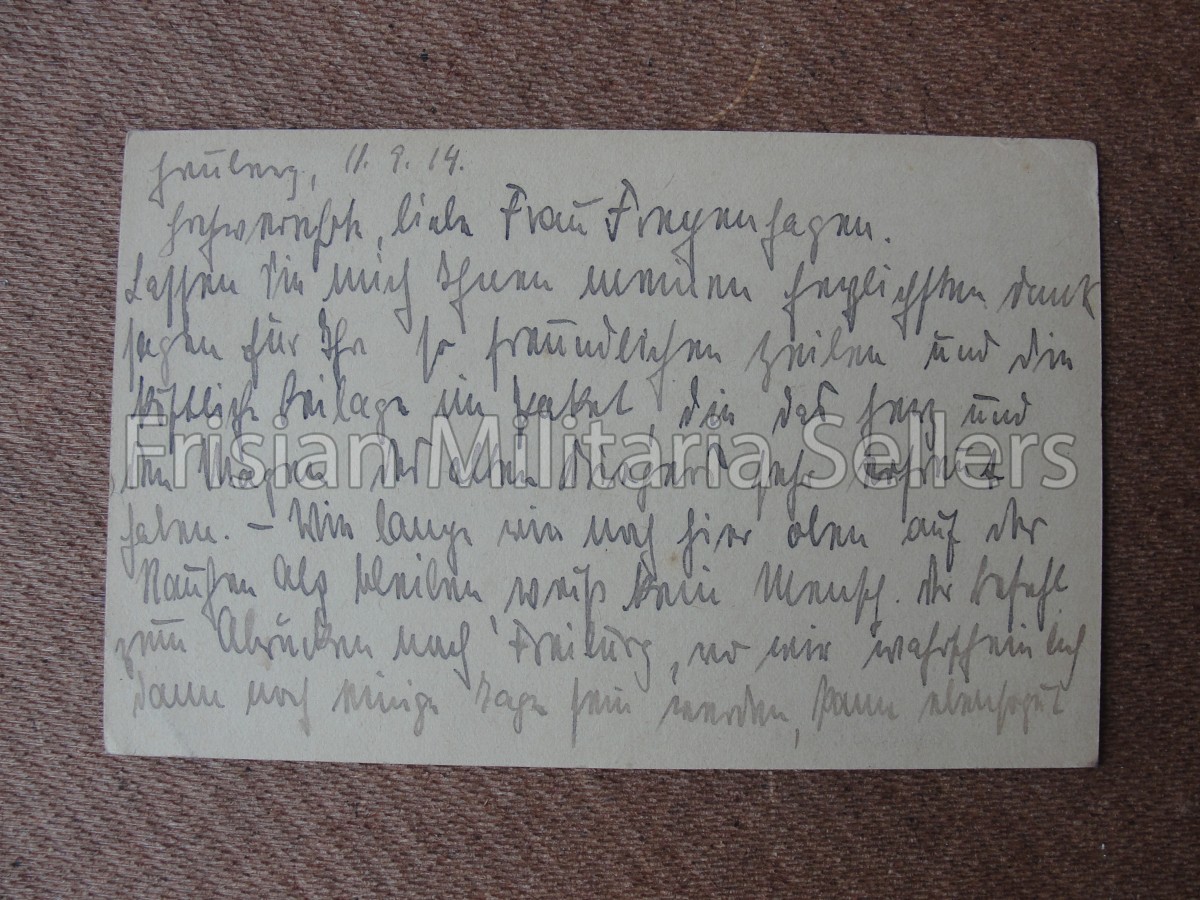 Heuberg, 11. 9. 14.
Hochverehrte, liebe Frau Freyenhagen.
Lassen Sie mich Ihnen meinen herzlichsten Dank
sagen für Ihr so freundlichen Zeilen und die
köstliche Beilage im Paket, die das Herz und
den Magen des alten sehr erfreut
haben. – Wie lange wir noch hier oben auf der
Rauhen Alb bleiben weiß kein Mensch. Der Befehl
zum Abrücken nach Freiburg, wo wir wahrscheinlich
dann noch einige Tage sein werden, kann ebensogut
Frisian Militaria Sellers